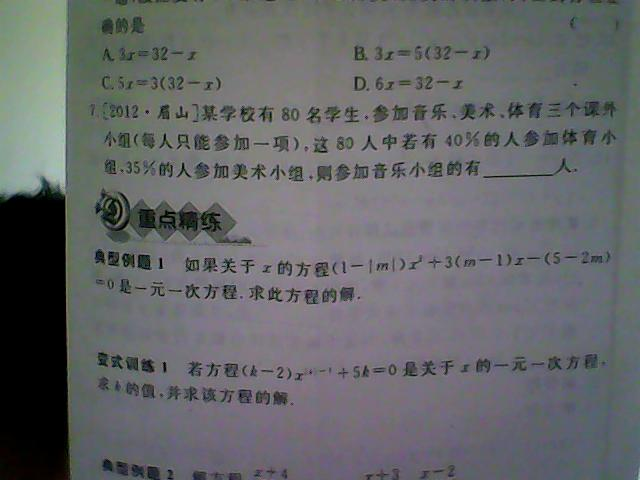 确的是 ( )
A. 3x=32-x B. 3x=5(32-x)
C. 5x=3(32-x) D. 6x=32-x
7.[2012·眉山]某学校有 80 名学生,参加音乐、美术、体育三个课外
小组(每人只能参加一项),这 80 人中若有 40%的人参加体育小
组,35%的人参加美术小组,则参加音乐小组的有______人.
重点精练
典型例题 1 如果关于 x 的方程(1-|m|)x²+3(m-1)x-(5-2m)
=0 是一元一次方程.求此方程的解.
变式训练 1 若方程(k-2)x +5k=0 是关于 x 的一元一次方程,
求 k 的值,并求该方程的解.
典型例题 2 解方程 x+4 x+3 x-2